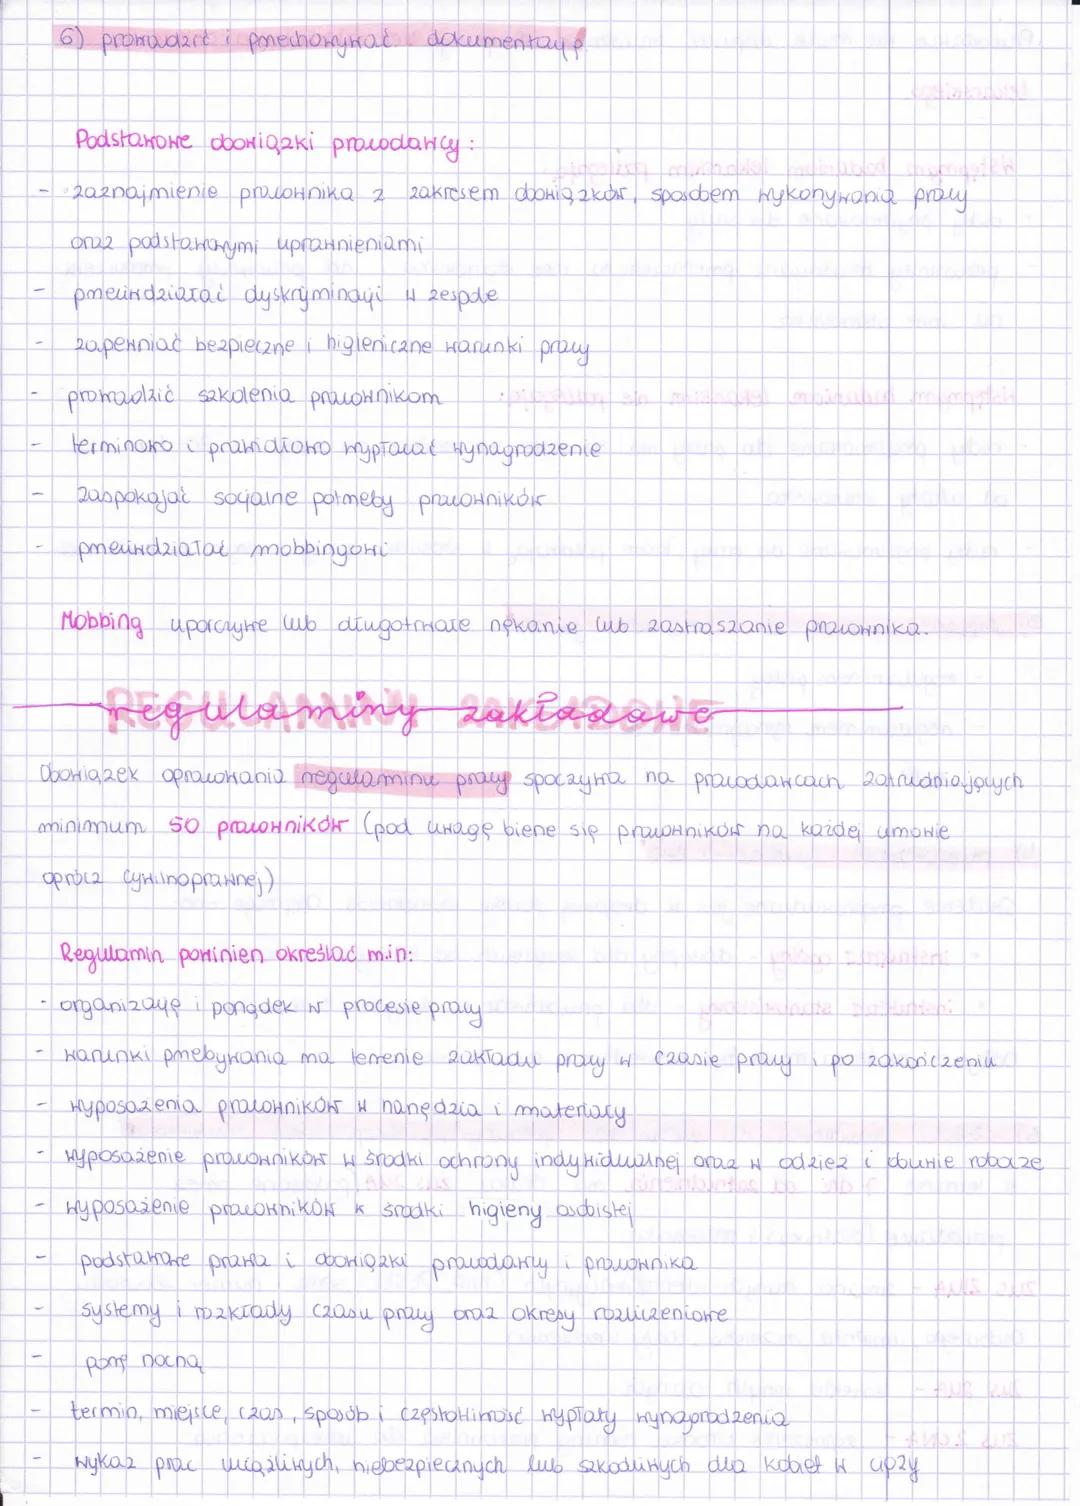 6) prowadzić i przechowywać dokumentację.
Podstawowe obowiązki pracodawcy:
- zaznajmienie pracownika z zakresem obowiązków, sposobem wykonywania pracy
oraz podstawowymi uprawnieniami
- przeciwdziałać dyskryminacji w zespole
- zapewniać bezpieczne i higieniczne warunki pracy
- prowadzić szkolenia pracownikom
- terminowo i prawidłowo wypłacać wynagrodzenie
- zaspokajać socjalne potrzeby pracowników
- przeciwdziałać mobbingowi
Mobbing uporczywe lub długotrwałe nękanie lub zastraszanie pracownika.
REGULAMINY ZAKŁADOWE
regulaminy zakładowe
Obowiązek opracowania regulaminu pracy spoczywa na pracodawcach zatrudniających
minimum 50 pracowników (pod uwagę bierze się pracowników na każdej umowie
oprócz cywilnoprawnej)
Regulamin powinien określać m.in:
- organizację i porządek w procesie pracy
- warunki przebywania na terenie zakładu pracy w czasie pracy i po zakończeniu
- wyposażenia pracowników w narzędzia i materiały
- wyposażenie pracowników w środki ochrony indywidualnej oraz w odzież i obuwie robocze
- wyposażenie pracowników w środki higieny osobistej
- podstawowe prawa i obowiązki pracodawcy i pracownika
- systemy i rozkłady czasu pracy oraz okresy rozliczeniowe
- porę nocną
- termin, miejsce, czas, sposób i częstotliwość wypłaty wynagrodzenia
- wykaz prac uciążliwych, niebezpiecznych lub szkodliwych dla kobiet w ciąży